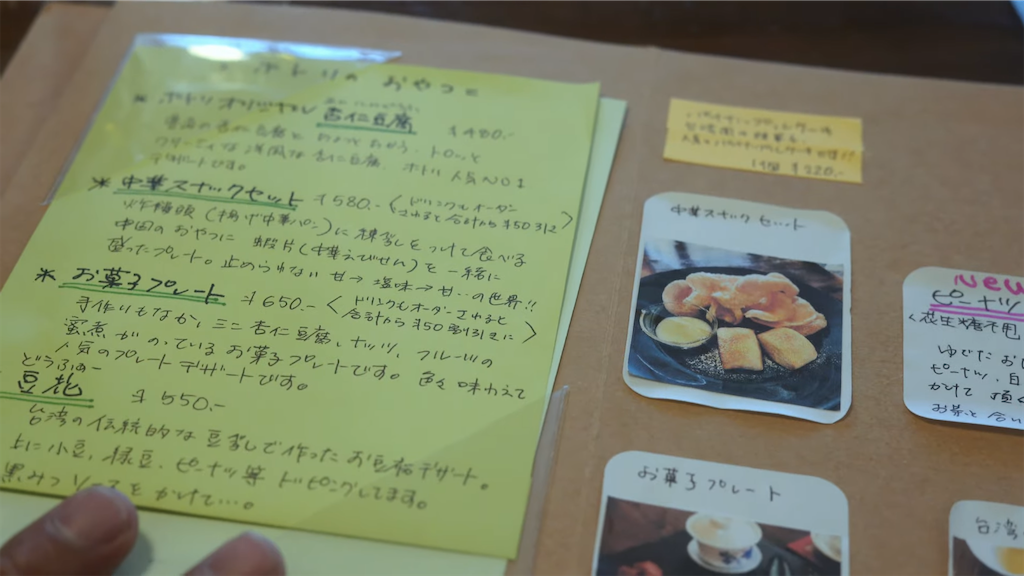 おやつ
杏仁豆腐 ¥480.-
デザートです。 人気NO1
* 中華スナックセット ¥580.- 〈ドリンクもオーダー
されると合計から¥50引に〉
(揚げ中華パン)に練乳をつけて食べる
中国のおやつに 蝦片(中華えびせん)と一緒に
盛ったプレート。止められない 甘→塩味→甘…の世界!!
* お菓子プレート ¥650.- 〈ドリンクもオーダーされると
合計から¥50割引に〉
手作りもなか、ミニ杏仁豆腐、ナッツ、フルーツの
蜜煮がのっているお菓子プレートです。色々味わえて
人気のプレートデザートです。
豆花 ¥550.-
台湾の伝統的な豆乳で作ったお豆腐デザート。
上に小豆、緑豆、ピーナッツ等トッピングしてます。
黒みつソースをかけて…。
1個 ¥220.-
中華スナックセット
New
ピーナッツ
ゆでたお
ピーナッツ、白
かけて頂く
お茶と合い
お菓子プレート
台湾